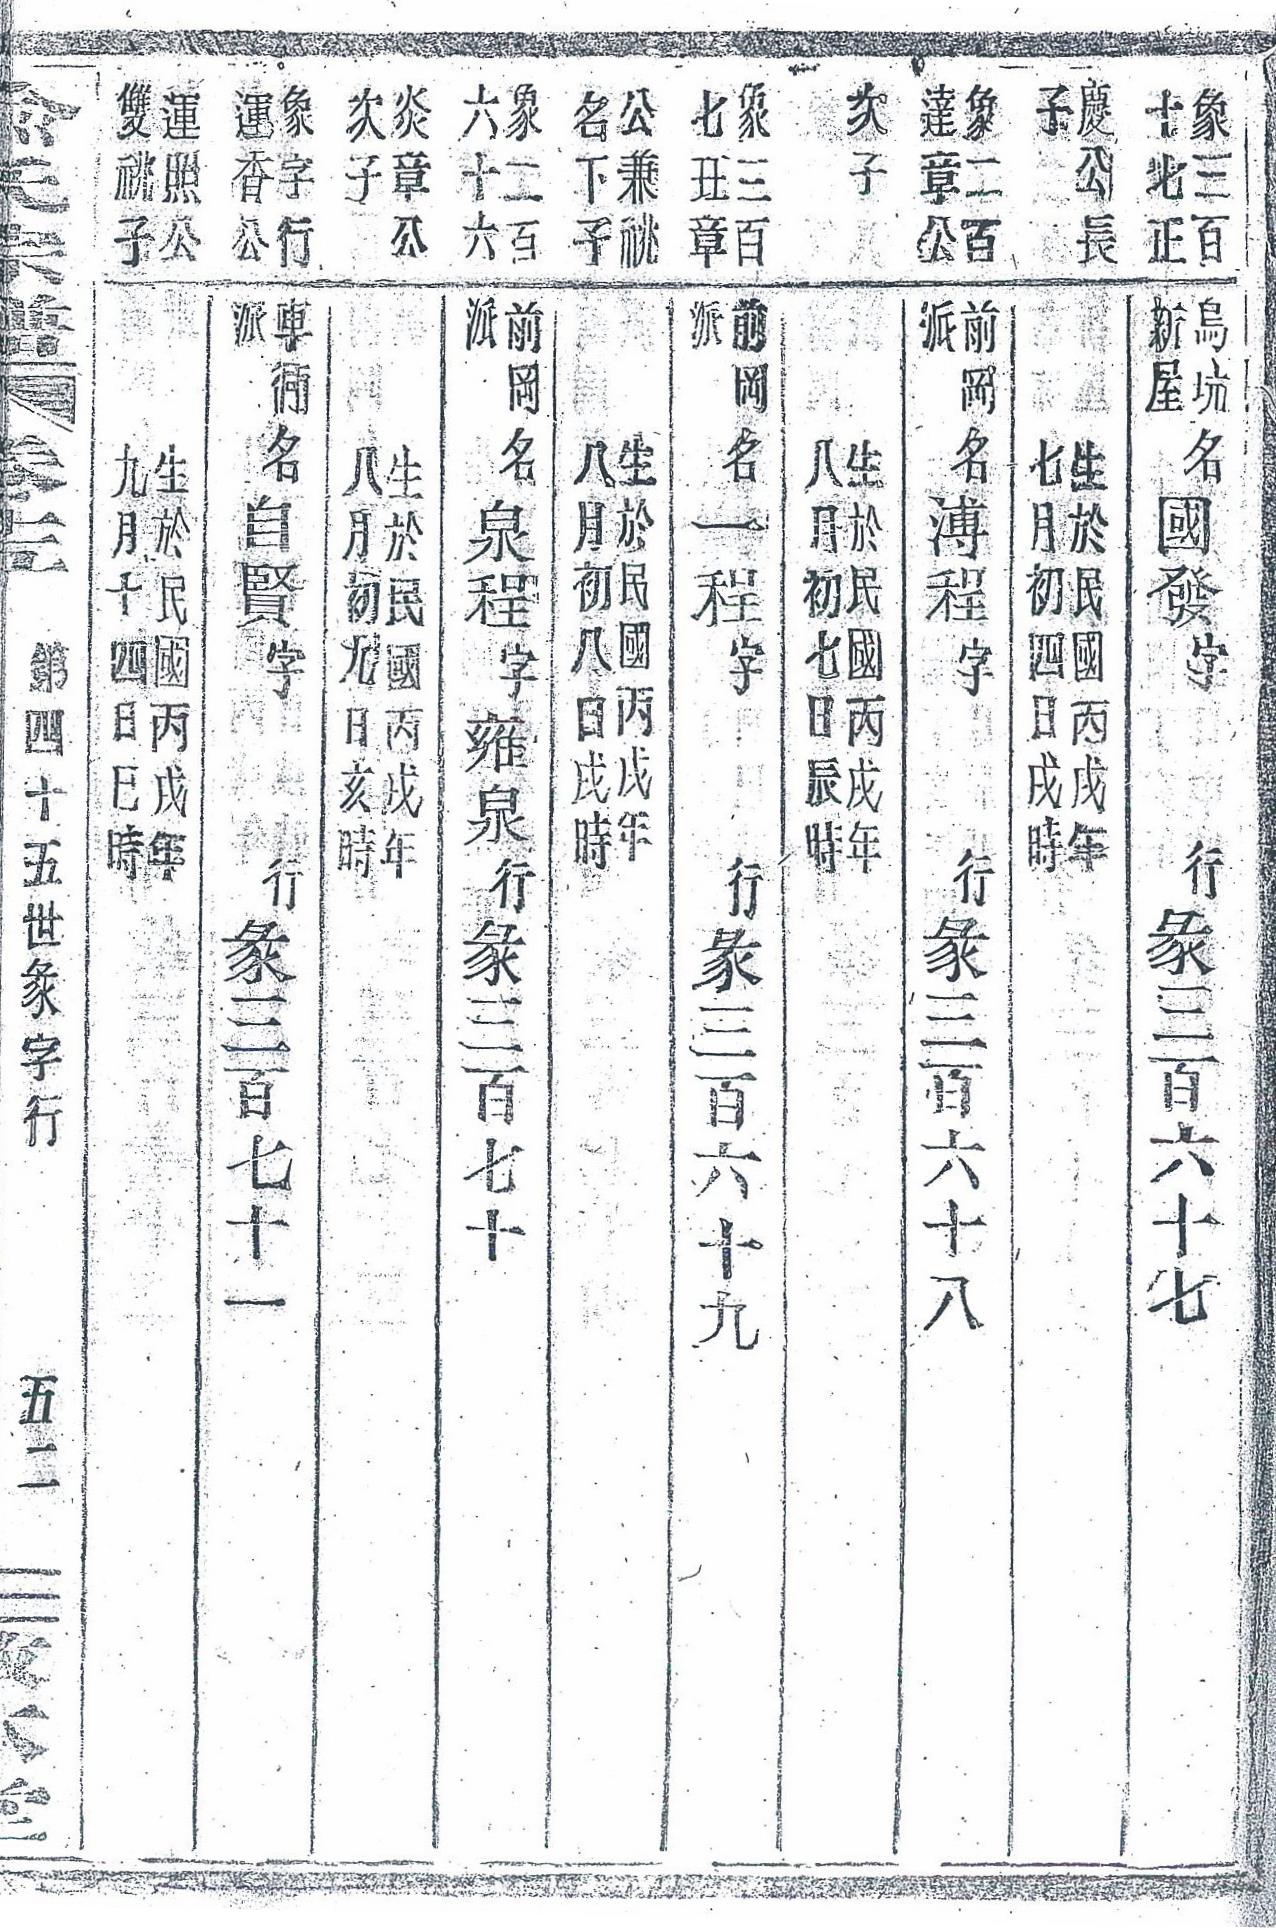 象三百
十七正
烏坑
新屋
名國發字 行彖三百六十七
慶公長
子
生於民國丙戌年
七月初四日戌時
象二百
達章公
前岡
派
名溥程字 行彖三百六十八
次子
生於民國丙戌年
八月初七日辰時
象三百
七丑章
前岡
派
名一程字 行彖三百六十九
公兼祧
名下子
生於民國丙戌年
八月初八日戌時
象二百
六十六
前岡
派
名泉程字雍泉行彖三百七十
炎章公
次子
生於民國丙戌年
八月初九日亥時
象字行
運香公
車衕
派
名自賢字 行彖三百七十一
運照公
雙祧子
生於民國丙戌年
九月十四日巳時
第四十五世彖字行 五二